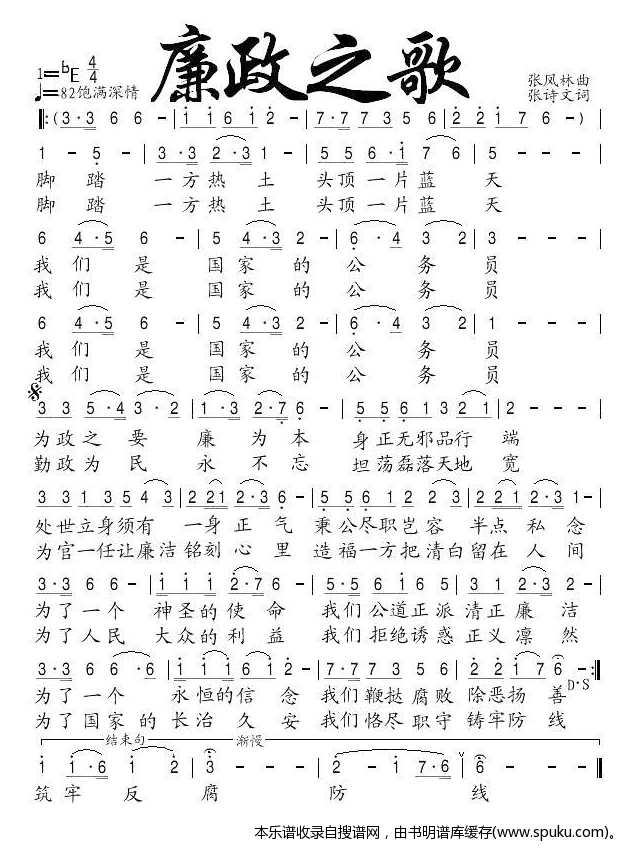 廉政之歌
1=bE 4/4
♩=82饱满深情
张凤林曲
张诗文词
‖:(3·3 6 6 - | 1 1 6 1 6 - | 7·7 7 3 5 6 | 2 2 1 7 6 - ) |
1 - 5 - | 3·3 2 3 1 - | 5 5 6·1 7 6 | 5 - - - |
脚踏一方热土头顶一片蓝天
脚踏一方热土头顶一片蓝天
6 4·5 6 - | 5 4·3 2 - | 6 6·4 3 2 | 3 - - - |
我们是国家的公务员
我们是国家的公务员
6 4·5 6 - | 5 4·3 2 - | 6 6·4 3 2 | 1 - - - |
我们是国家的公务员
我们是国家的公务员
3 3 5·4 3·2 | 1·3 2·7 6 - | 5 5 6 1 3 2 1 | 2 - - - |
为政之要廉为本身正无邪品行端
勤政为民永不忘坦荡磊落天地宽
3 3 1 3 5 4 3 | 2 2 2 1 2·3 6 - | 5 5 6 1 2 1 3 | 2 2 2 1 2·3 1 - |
处世立身须有一身正气秉公尽职岂容半点私念
为官一任让廉洁铭刻心里造福一方把清白留在人间
3·3 6 6 - | 1·2 3 1 2·7 6 | 6 6 6 5 3 2 3 1 | 2 2·3 - |
为了一个神圣的使命我们公道正派清正廉洁
为了人民大众的利益我们拒绝诱惑正义凛然
3·3 6 6 6·6 | 1 1 1 6 1 6 2 - | 7·7 7·7 3 5 6 | 2 2 1 7 6 - :‖
为了一个永恒的信念我们鞭挞腐败除恶扬善
D·S
为了国家的长治久安我们恪尽职守铸牢防线
结束句 渐慢
1 1·6 1 2 | 3 - - - | 2 - 2 1 7·6 | 6 - - - ‖
筑牢反腐防线
本乐谱收录自搜谱网，由书明谱库缓存(www.spuku.com)。